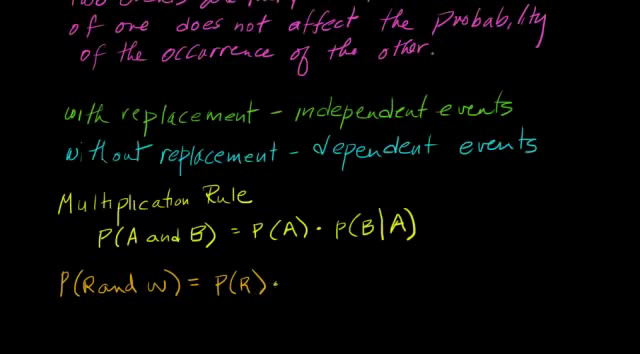 of one does not affect the probability
of the occurrence of the other.
with replacement - independent events
without replacement - dependent events
Multiplication Rule
P(A and B) = P(A) · P(B|A)
P(R and W) = P(R) ·